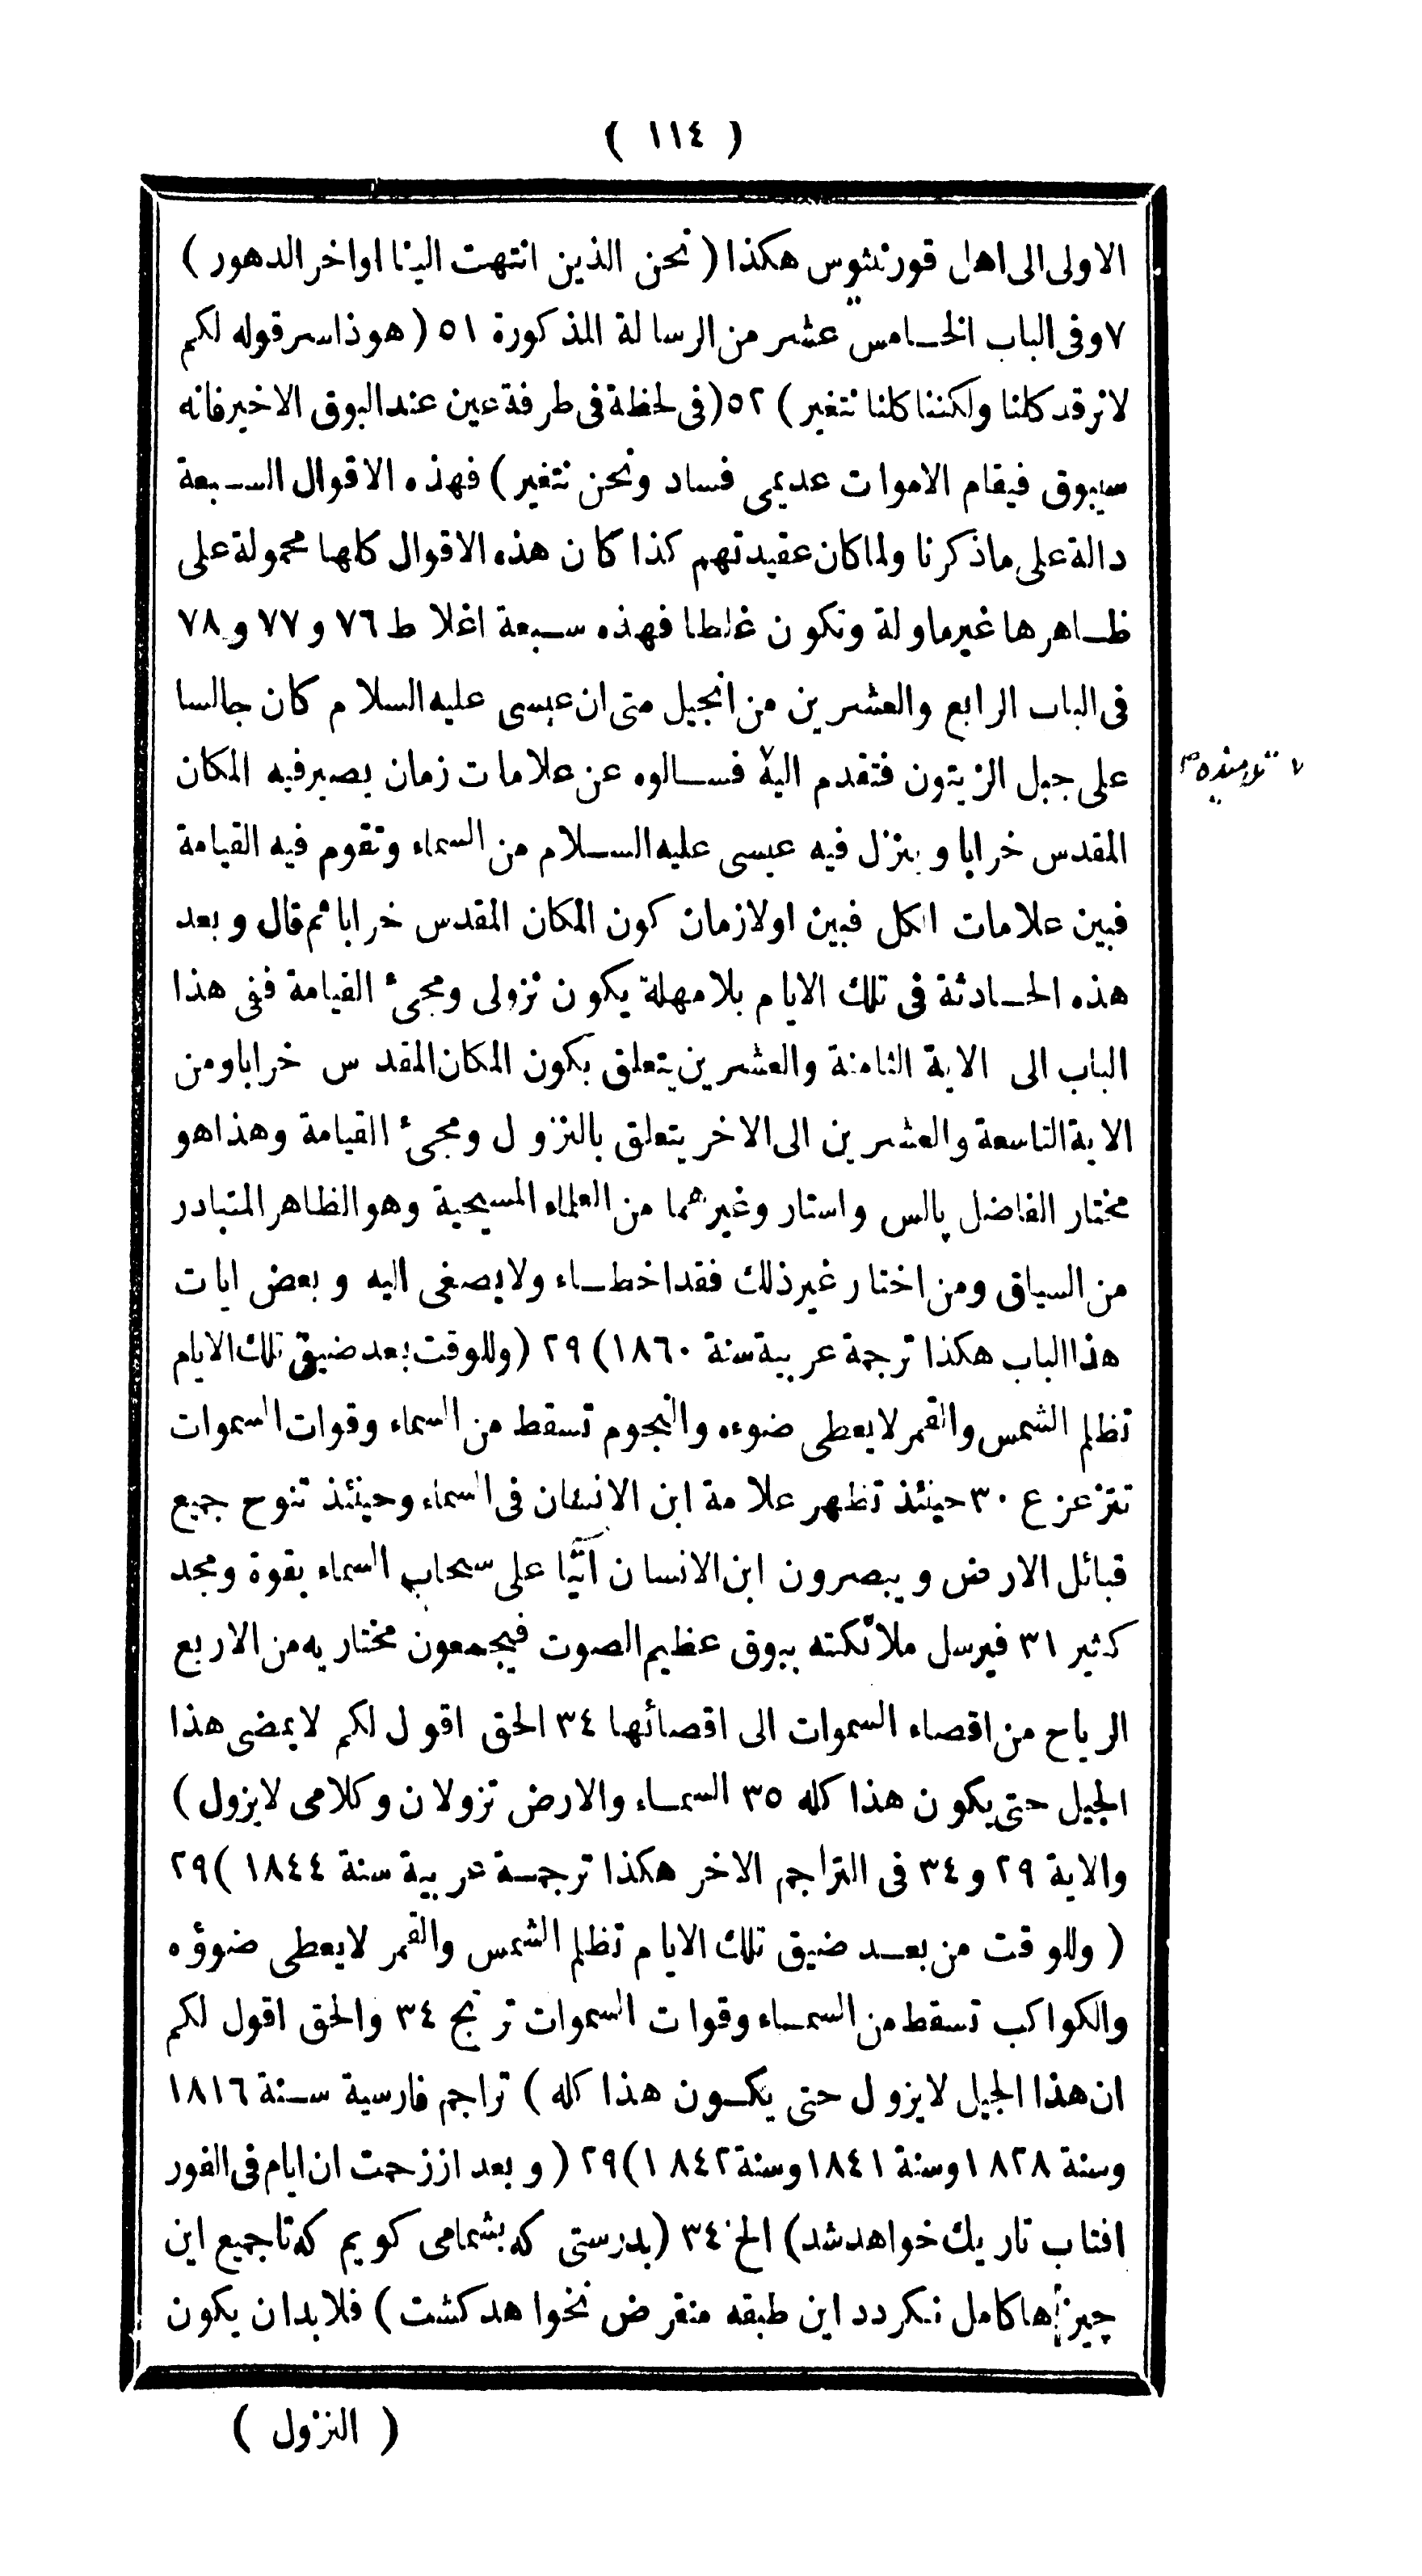 ( ١١٤ )
الاولى الى اهل قورنثيوس هكذا ( نحن الذين انتهت الينا اواخر الدهور )
٧ وفى الباب الخامس عشر من الرسالة المذكورة ٥١ ( هوذا سر قوله لكم
لا نرقد كلنا ولكننا كلنا نتغير ) ٥٢ ( فى لحظة فى طرفة عين عند البوق الاخير فانه
سيبوق فيقام الاموات عديمى فساد ونحن نتغير ) فهذه الاقوال السبعة
دالة على ما ذكرنا ولما كان عقيدتهم كذا كان هذه الاقوال كلها محمولة على
ظاهرها غير ماولة وتكون غلطا فهذه سبعة اغلاط ٧٦ و ٧٧ و ٧٨
فى الباب الرابع والعشرين من انجيل متى ان عيسى عليه السلام كان جالسا
على جبل الزيتون فتقدم اليه ٧ فسالوه عن علامات زمان يصير فيه المكان
٧ تلاميذه صح
المقدس خرابا وينزل فيه عيسى عليه السلام من السماء وتقوم فيه القيامة
فبين علامات الكل فبين اولا زمان كون المكان المقدس خرابا ثم قال وبعد
هذه الحادثة فى تلك الايام بلا مهلة يكون نزولى ومجىء القيامة ففى هذا
الباب الى الاية الثامنة والعشرين يتعلق بكون المكان المقدس خرابا ومن
الاية التاسعة والعشرين الى الاخر يتعلق بالنزول ومجىء القيامة وهذا هو
مختار الفاضل پالس واستار وغيرهما من العلماء المسيحية وهو الظاهر المتبادر
من السياق ومن اختار غير ذلك فقد اخطاء ولا يصغى اليه وبعض ايات
هذا الباب هكذا ترجمة عربية سنة ١٨٦٠) ٢٩ (وللوقت بعد ضيق تلك الايام
تظلم الشمس والقمر لا يعطى ضوءه والنجوم تسقط من السماء وقوات السموات
تتزعزع ٣٠ حينئذ تظهر علامة ابن الانسان فى السماء وحينئذ تنوح جميع
قبائل الارض ويبصرون ابن الانسان آتيا على سحاب السماء بقوة ومجد
كثير ٣١ فيرسل ملائكته ببوق عظيم الصوت فيجمعون مختاريه من الاربع
الرياح من اقصاء السموات الى اقصائها ٣٤ الحق اقول لكم لا يمضى هذا
الجيل حتى يكون هذا كله ٣٥ السماء والارض تزولان وكلامى لا يزول )
والاية ٢٩ و ٣٤ فى التراجم الاخر هكذا ترجمة عربية سنة ١٨٤٤ ) ٢٩
( وللوقت من بعد ضيق تلك الايام تظلم الشمس والقمر لا يعطى ضوؤه
والكواكب تسقط من السماء وقوات السموات ترتج ٣٤ والحق اقول لكم
ان هذا الجيل لا يزول حتى يكون هذا كله ) تراجم فارسية سنة ١٨١٦
وسنة ١٨٢٨ وسنة ١٨٤١ وسنة ١٨٤٢) ٢٩ ( وبعد از زحمت ان ايام فى الفور
افتاب تاريك خواهد شد) الخ ٣٤ (بدرستى كه بشما مى كويم كه تا جميع اين
چيزها كامل نكردد اين طبقه منقرض نخواهد كشت ) فلا بد ان يكون
( النزول )